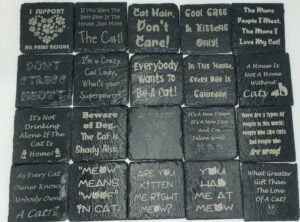 I SUPPORT
ALL PAWS RESCUE
If You Want The
Best Seat In The
House, Just Move
The Cat!
Cat Hair,
Don't
Care!
Cool Cats
& Kittens
Only!
The More
People I Meet,
The More I
Love My Cat!
DON'T
STRESS
MEOWT
I'm a Crazy
Cat Lady,
What's Your
Superpower?
Everybody
Wants To
Be A Cat!
In This House,
Every Day is
Caturday!
A House Is
Not A Home
Without
Cats
It's Not
Drinking
Alone If The
Cat Is
Home!
Beware
of Dog,
The Cat is
Shady Also
It's A New Dawn
It's A New Day
And I'm
Feline Good!
There are 2 types of
People in this world:
People who Like Cats
And People who
Are Wrong!
As Every Cat
Owner Knows,
Nobody Owns
A Cat!
"MEOW"
MEANS
"WOOF"
IN CAT.
ARE YOU
KITTEN
ME RIGHT
MEOW?
YOU
HAD
ME AT
MEOW
What Greater
Gift Than
The Love
Of A
Cat?